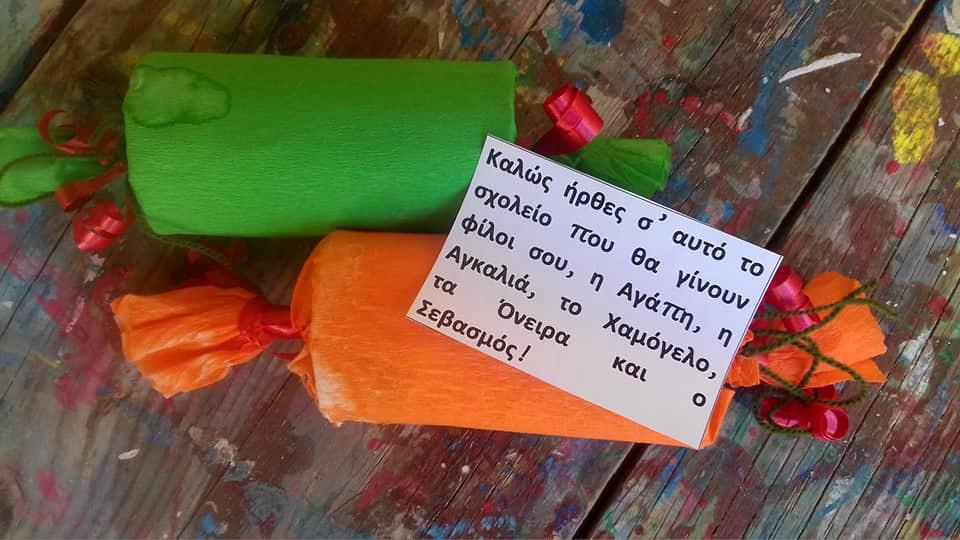 Καλώς ήρθες σ' αυτό το
σχολείο που θα γίνουν
φίλοι σου, η Αγάπη, η
Αγκαλιά, το Χαμόγελο,
τα Όνειρα και ο
Σεβασμός!